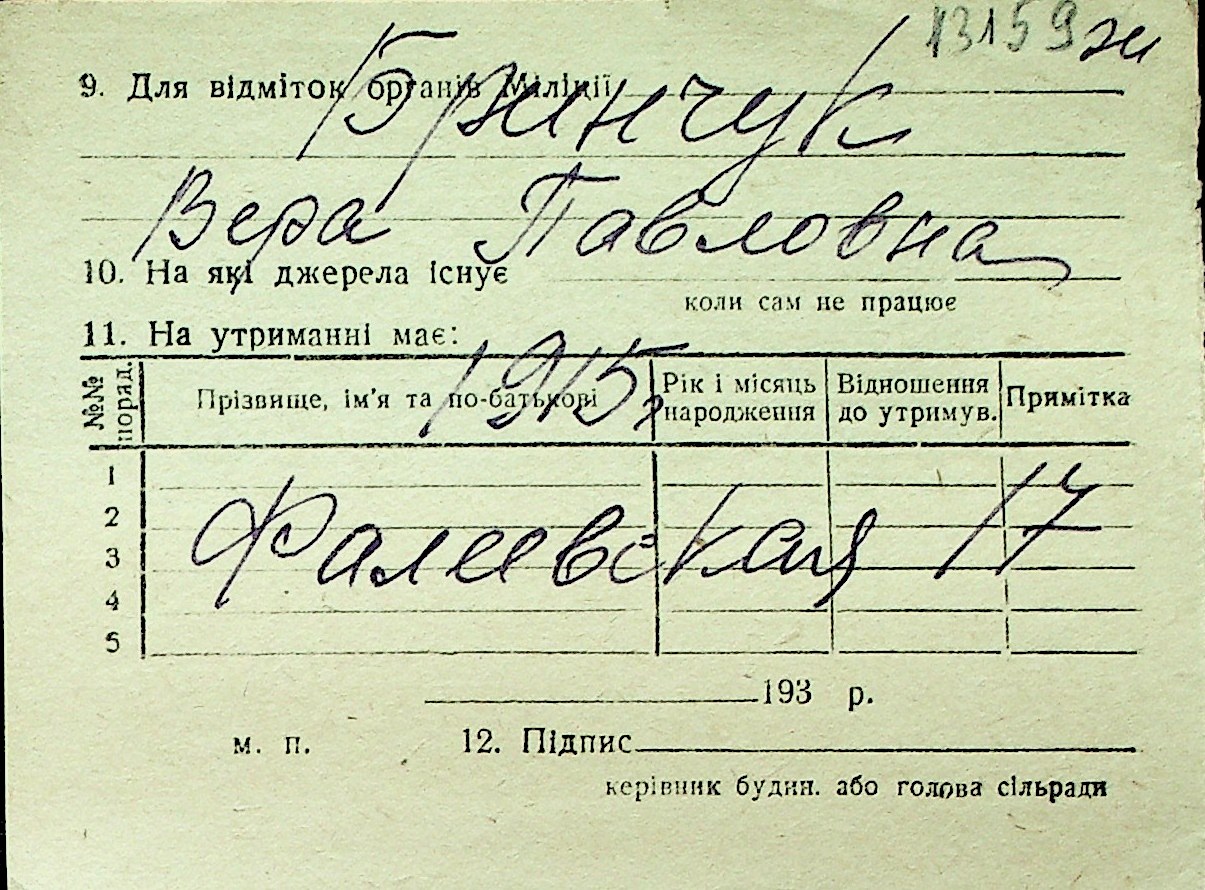 13159 жи
9. Для відміток органів Міліції
Бринчук
Вера Павловна
10. На які джерела існує
коли сам не працює
11. На утриманні має:
1915 г
№№ поряд. Прізвище, ім'я та по-батькові Рік і місяць народження Відношення до утримув. Примітка
1
2
Фалеевская 17
3
4
5
193 р.
м. п. 12. Підпис
керівник будин. або голова сільради